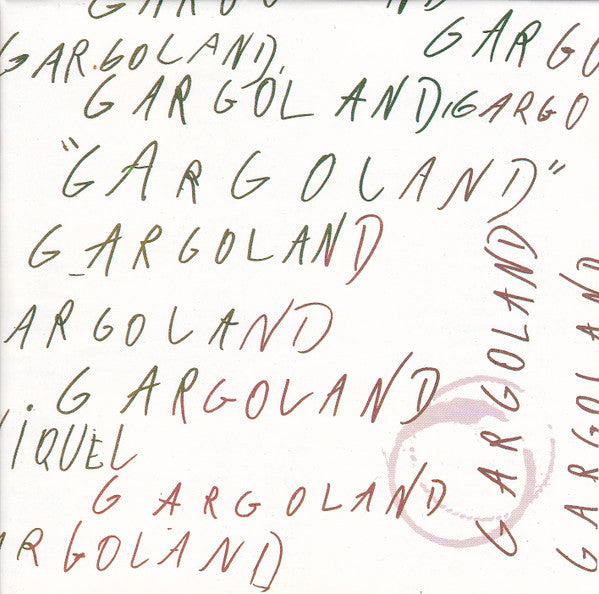 GARGOLAND
GARGOLAND,
GARGO
GARGOLAND,
GARGO
"GARGOLAND"
GARGOLAND
ARGOLAND
.GARGOLAND
IQUEL
GARGOLAND
ARGOLAND
GARGOLAND
GARGOLAND